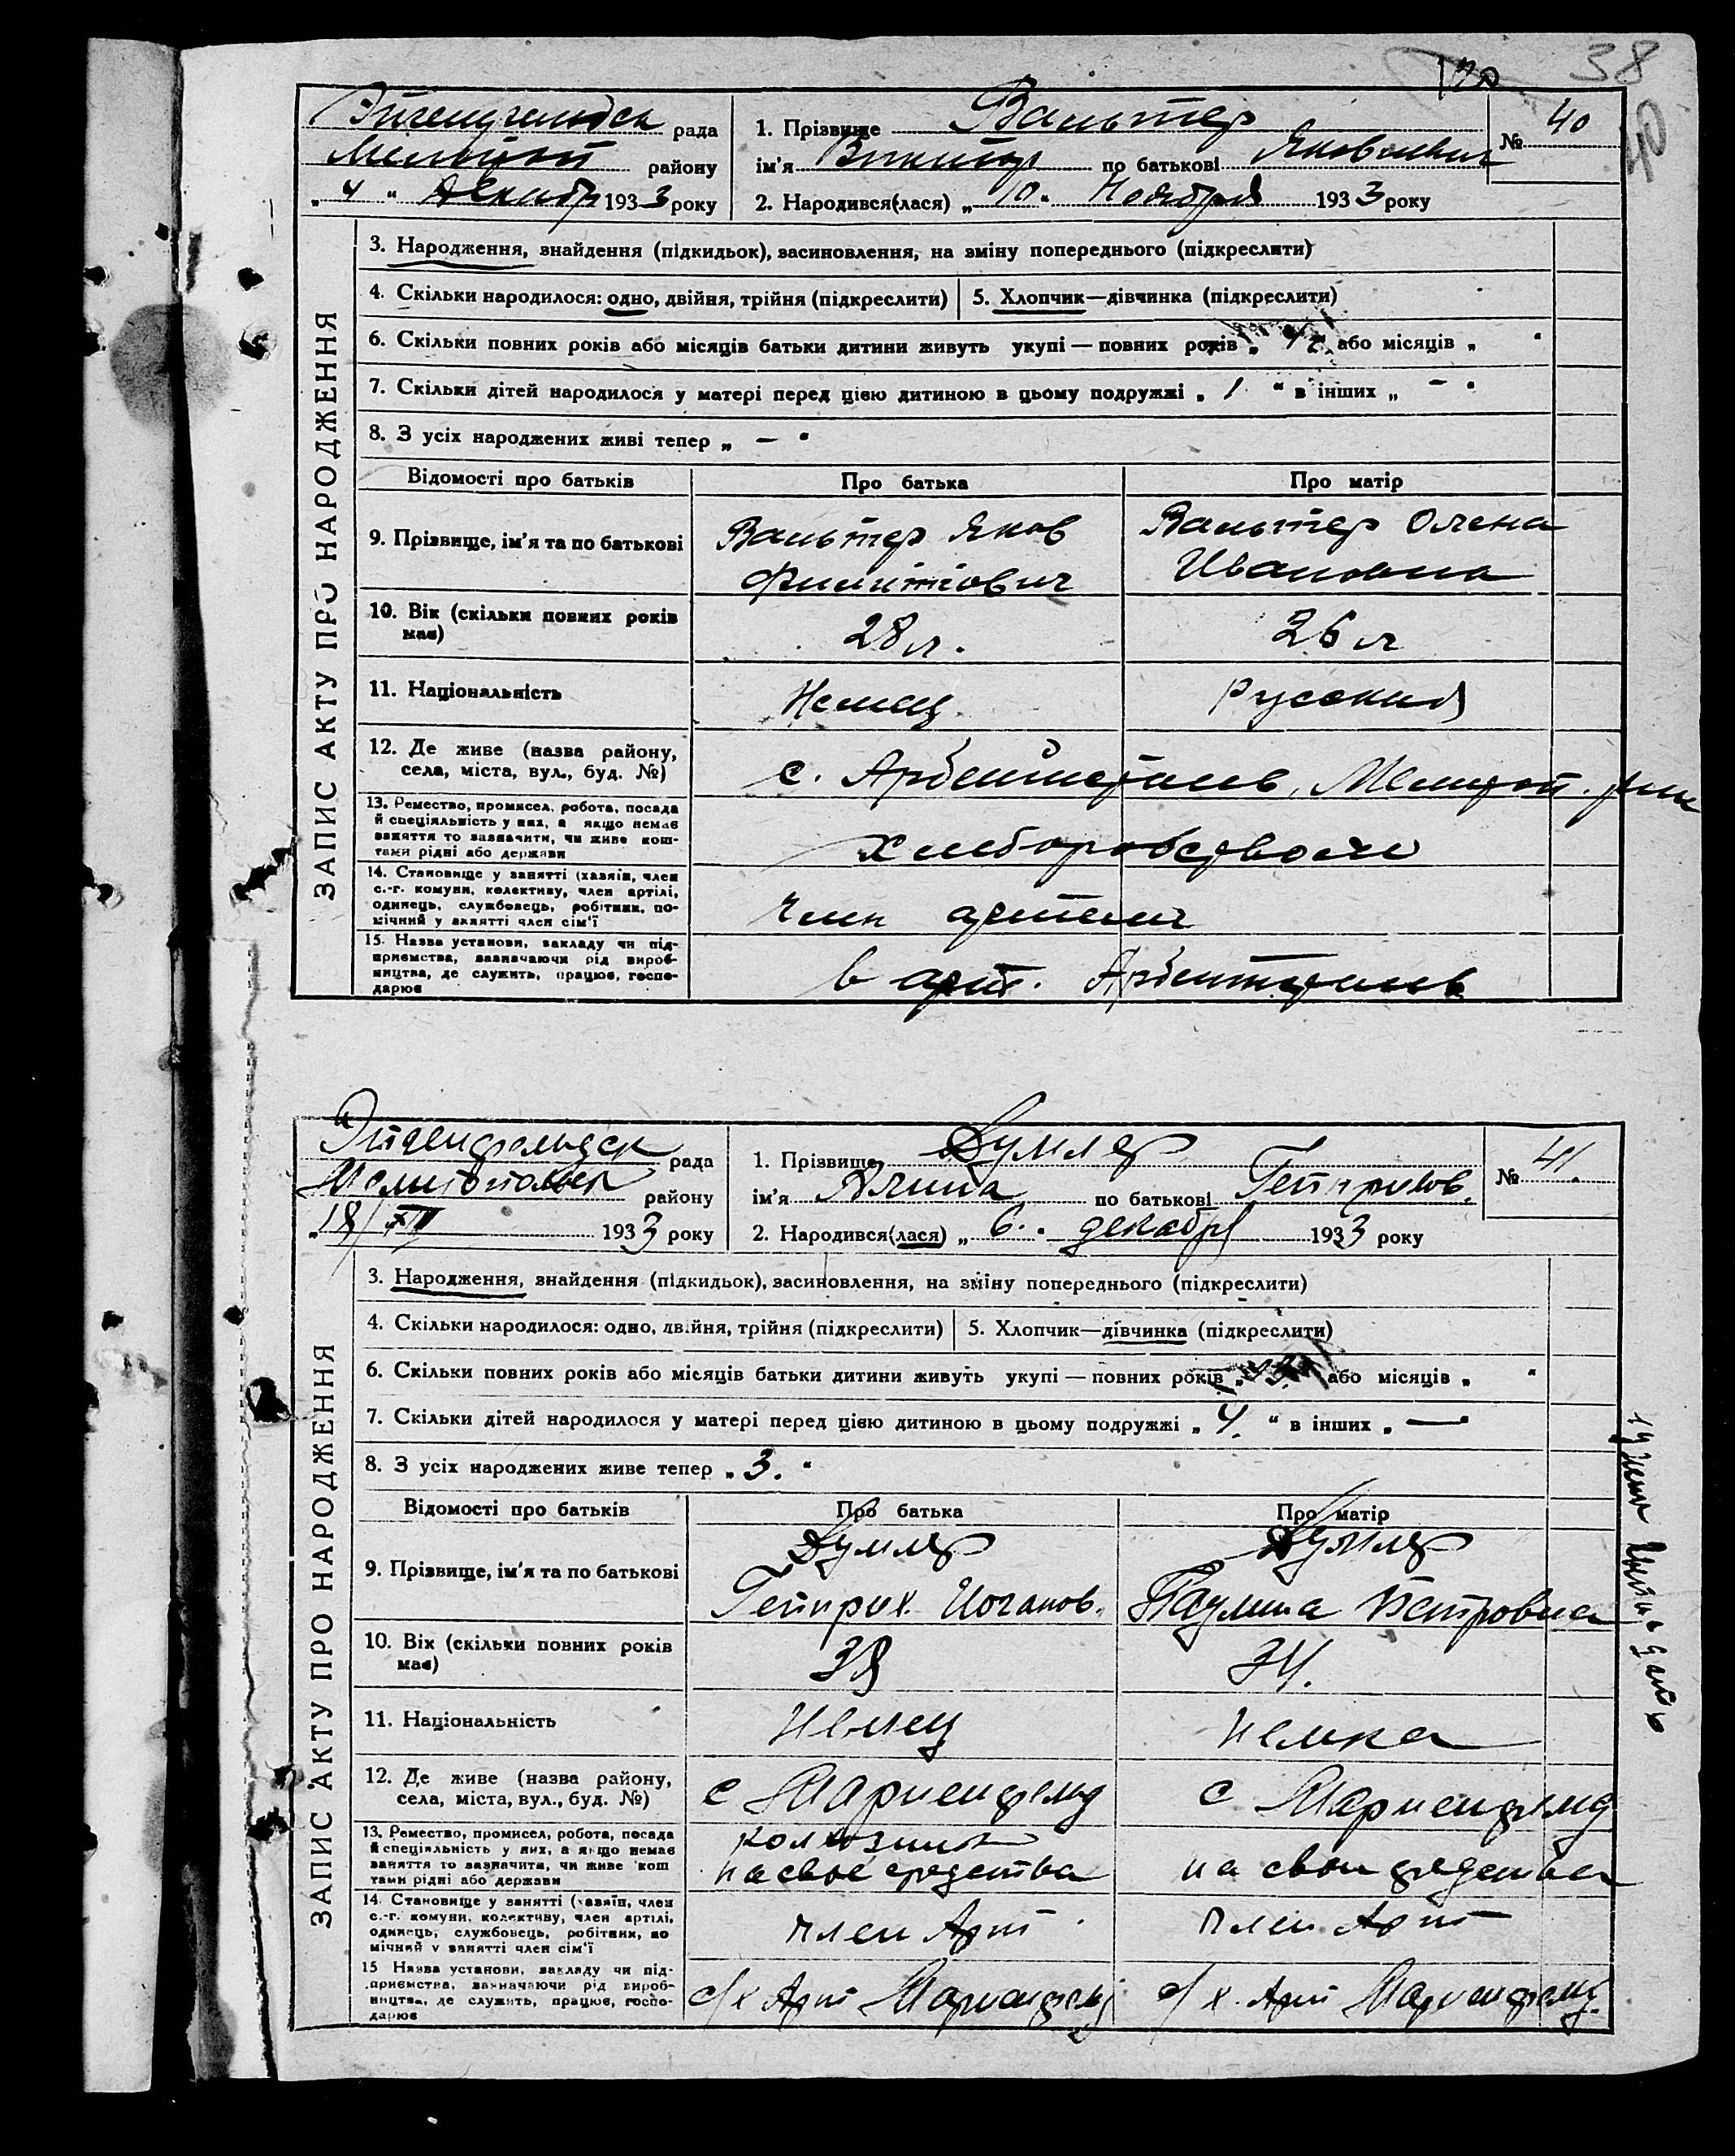 38
40
рада
1. Прізвище Вальтер
№ 40
Мелитоп району
ім'я Виктор по батькові Яковлевич
„4“ Декабр 1933 року
2. Народився(лася) „10“ Ноября 1933 року
ЗАПИС АКТУ ПРО НАРОДЖЕННЯ
3. Народження, знайдення (підкидьок), засиновлення, на зміну попереднього (підкреслити)
4. Скільки народилося: одно, двійня, трійня (підкреслити)
5. Хлопчик—дівчинка (підкреслити)
6. Скільки повних років або місяців батьки дитини живуть укупі — повних років „ або місяців „ “
7. Скільки дітей народилося у матері перед цією дитиною в цьому подружжі „ 1 “ в інших „ — “
8. З усіх народжених живі тепер „ — “
Відомості про батьків
Про батька
Про матір
9. Прізвище, ім'я та по батькові
Вальтер Яков
Вальтер Олена
Ивановна
10. Вік (скільки повних років
має)
28 л.
26 л
11. Національність
Немец
Руский
12. Де живе (назва району,
села, міста, вул., буд. №)
с.
13. Ремество, промисел, робота, посада
й спеціяльність у них, а якщо немає
заняття то зазначити, чи живе кош-
тами рідні або держави
14. Становище у занятті (хазяїн, член
с.-г. комуни, колективу, член артілі,
одинець, службовець, робітник, по-
мічний у занятті член сім'ї
член артели
15. Назва установи, закладу чи під-
приємства, зазначаючи рід вироб-
ництва, де служить, працює, госпо-
дарює
в арт.
рада
1. Прізвище Думлер
№ 41.
району
ім'я Алина по батькові Гейнрихов.
„18/XII 1933 року
2. Народився(лася) „6.“ декабря 1933 року
ЗАПИС АКТУ ПРО НАРОДЖЕННЯ
3. Народження, знайдення (підкидьок), засиновлення, на зміну попереднього (підкреслити)
4. Скільки народилося: одно, двійня, трійня (підкреслити)
5. Хлопчик—дівчинка (підкреслити)
6. Скільки повних років або місяців батьки дитини живуть укупі — повних років „ або місяців „ “
7. Скільки дітей народилося у матері перед цією дитиною в цьому подружжі „ 4. “ в інших „ — “
8. З усіх народжених живе тепер „ 3. “
Відомості про батьків
Про батька
Про матір
9. Прізвище, ім'я та по батькові
Думлер
Гейнрих. Иоганов.
Думлер
Паулина Петровна
10. Вік (скільки повних років
має)
38
34.
11. Національність
Немец
Немка
12. Де живе (назва району,
села, міста, вул., буд. №)
с Мариенфелд
с Мариенфелд
13. Ремество, промисел, робота, посада
й спеціяльність у них, а якщо немає
заняття то зазначити, чи живе кош
тами рідні або держави
колхозник
на свое средства
на свои средства
14. Становище у занятті (хазяїн, член
с.-г. комуни, колективу, член артілі,
одинець, службовець, робітник, по
мічний у занятті член сім'ї
член Арт
член Арт
15 Назва установи, закладу чи під-
приємства, зазначаючи рід вироб-
ництва, де служить, працює, госпо-
дарює
с/х Арт Мариенфелд
с/х. Арт Мариенфелд.